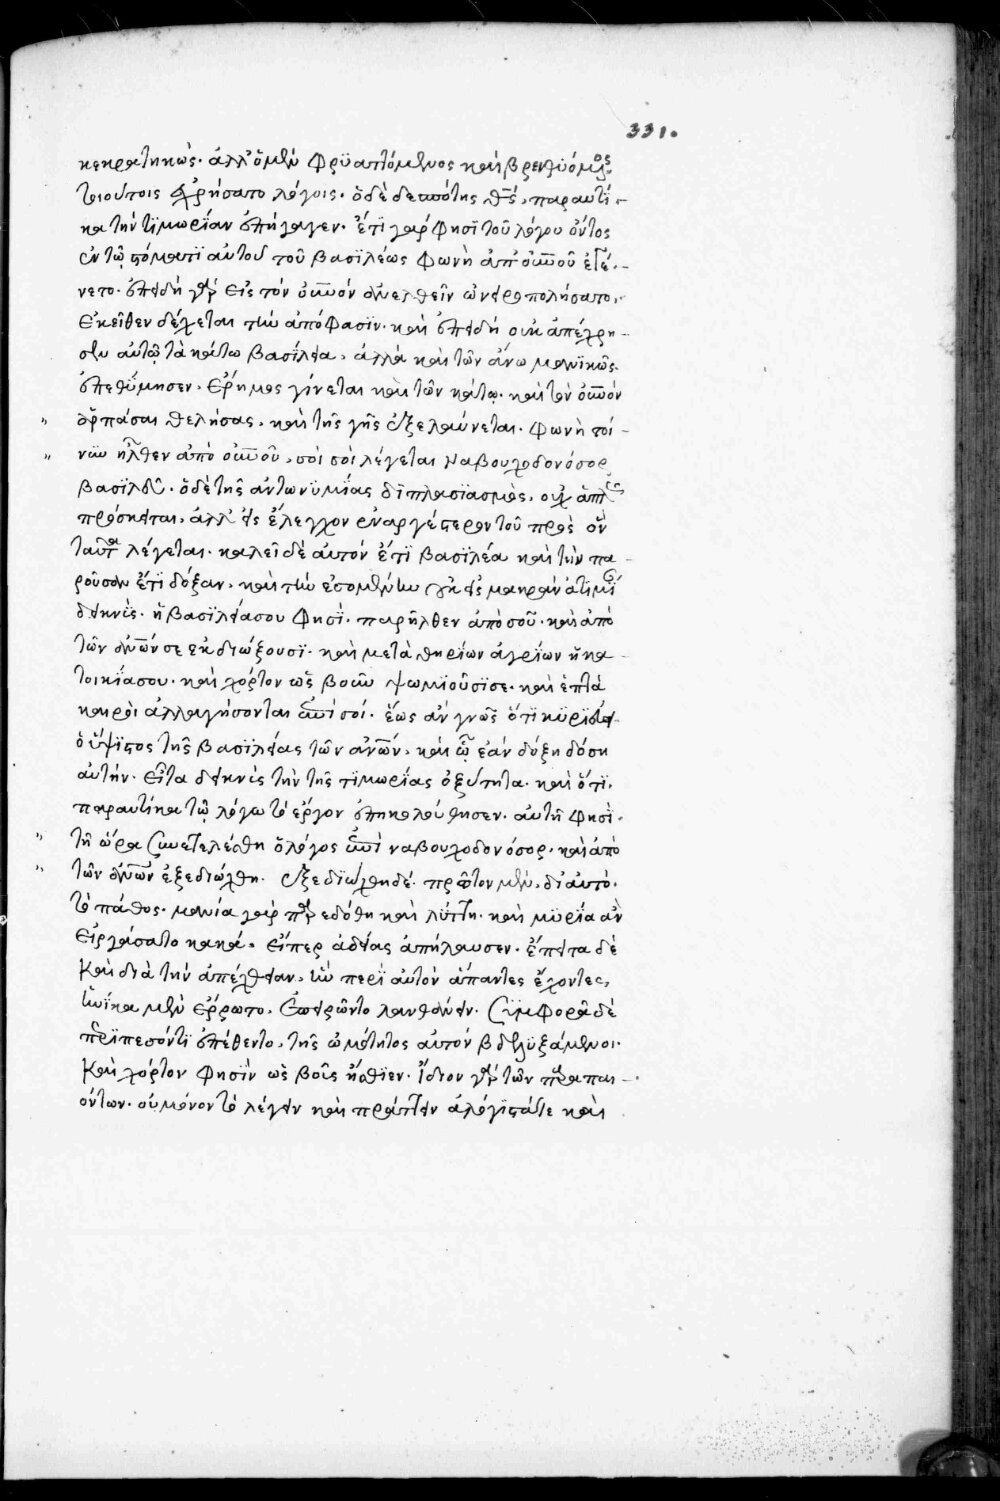 331.
κεκρατηκώς. ἀλλ' ὁ μὲν φρϋαττόμενος καὶ βρενθϋόμενος
τοιούτοις ἐχρήσατο λόγοις. ὁ δὲ δεσπότης θς, παραυτί-
κα τὴν τϊμωρΐαν ἐπήγαγεν. ἔτϊ γάρ φησϊ τοῦ λόγου ὄντος
ἐν τῷ στόματϊ αὐτοῦ τοῦ βασιλέως φωνὴ ἀπ' οὐνοῦ ἐγέ-
νετο. ἐπειδὴ γὰρ εἰς τὸν οὐνόν ἀνελθεῖν ὠνειροπόλησατο,
ἐκεῖθεν δέχεται τὴν ἀπόφασϊν. καὶ ἐπειδή οὐκ ἀπέχρη-
σεν αὐτῷ τὰ κάτω βασΐλεια, ἀλλὰ καὶ τῶν ἄνω μανϊκῶς
ἐπεθΰμησεν. ἔρημος γίνεται καὶ τῶν κάτω. καὶ τὸν οὐνόν
ἁρπάσαι θελήσας, καὶ τῆς γῆς ἐξελαύνεται. φωνὴ τοί-
νυν ἦλθεν ἀπὸ οὐνοῦ, σοὶ σοὶ λέγεται Ναβουχοδονόσορ
βασϊλεῦ. ὁ δὲ τῆς ἀντωνϋμΐας δϊπλασϊασμὸς, οὐχ ἁπλῶς
πρόσκειται, ἀλλ' εἰς ἔλεγχον ἐναργέστερον τοῦ πρὸς ὃν
ταῦτα λέγεται. καλεῖ δὲ αὐτόν ἔτϊ βασϊλέα καὶ τὴν πα-
ροῦσαν ἔτϊ δόξαν, καὶ τὴν ἐσομένην οὐκ εἰς μακρὰν ἀτιμΐαν
δεικνὺς. ἡ βασϊλείασου φησΐ. παρῆλθεν ἀπὸ σοῦ. καὶ ἀπὸ
τῶν ἀνῶν σε ἐκδιώξουσϊ. καὶ μετὰ θηρΐων ἀγρΐων ἡ κα-
τοικΐασου. καὶ χόρτον ὡς βοῦν ψωμϊοῦσϊσε. καὶ ἑπτὰ
καιροὶ ἀλλαγήσονται ἐπὶ σοί. ἕως ἂν γνῷς ὅτϊ κϋρϊεύει
ὁ ὕψϊστος τῆς βασϊλείας τῶν ἀνῶν, καὶ ᾧ ἐάν δόξη δόση
αὐτήν. εἶτα δεικνὺς τὴν τῆς τϊμωρΐας ὀξύτητα. καὶ ὅτϊ
παραυτίκα τῷ λόγω τὸ ἔργον ἐπηκολούθησεν. αὐτῆ φησΐ
τῆ ὥρα συνετελέσθη ὁ λόγος ἐπὶ ναβουχοδονόσορ. καὶ ἀπὸ
τῶν ἀνῶν ἐξεδιώχθη. ἐξεδϊώχθη δέ. πρῶτον μὲν, δϊ αὐτὸ
τὸ πάθος. μανία γὰρ παρεδόθη καὶ λύττη. καὶ μϋρΐα ἂν
εἰργάσατο κακά. εἴπερ ἀδείας ἀπήλαυσεν. ἔπειτα δὲ
καὶ διὰ τὴν ἀπέχθειαν, ἣν περϊ αὐτόν ἅπαντες ἔχοντες,
ἡνΐκα μὲν ἔρρωτο, ἐπειρῶντο λανθάνειν. συμφορᾶ δὲ
περϊπεσόντϊ ἐπέθεντο, τῆς ὠμότητος αὐτόν βδελϋξάμενοι.
καὶ χόρτον φησΐν ὡς βοῦς ἤσθϊεν. ἴδιον γὰρ τῶν παραπαι-
όντων. οὐ μόνον τὸ λέγειν καὶ πράττειν ἀλόγϊστάτε καὶ